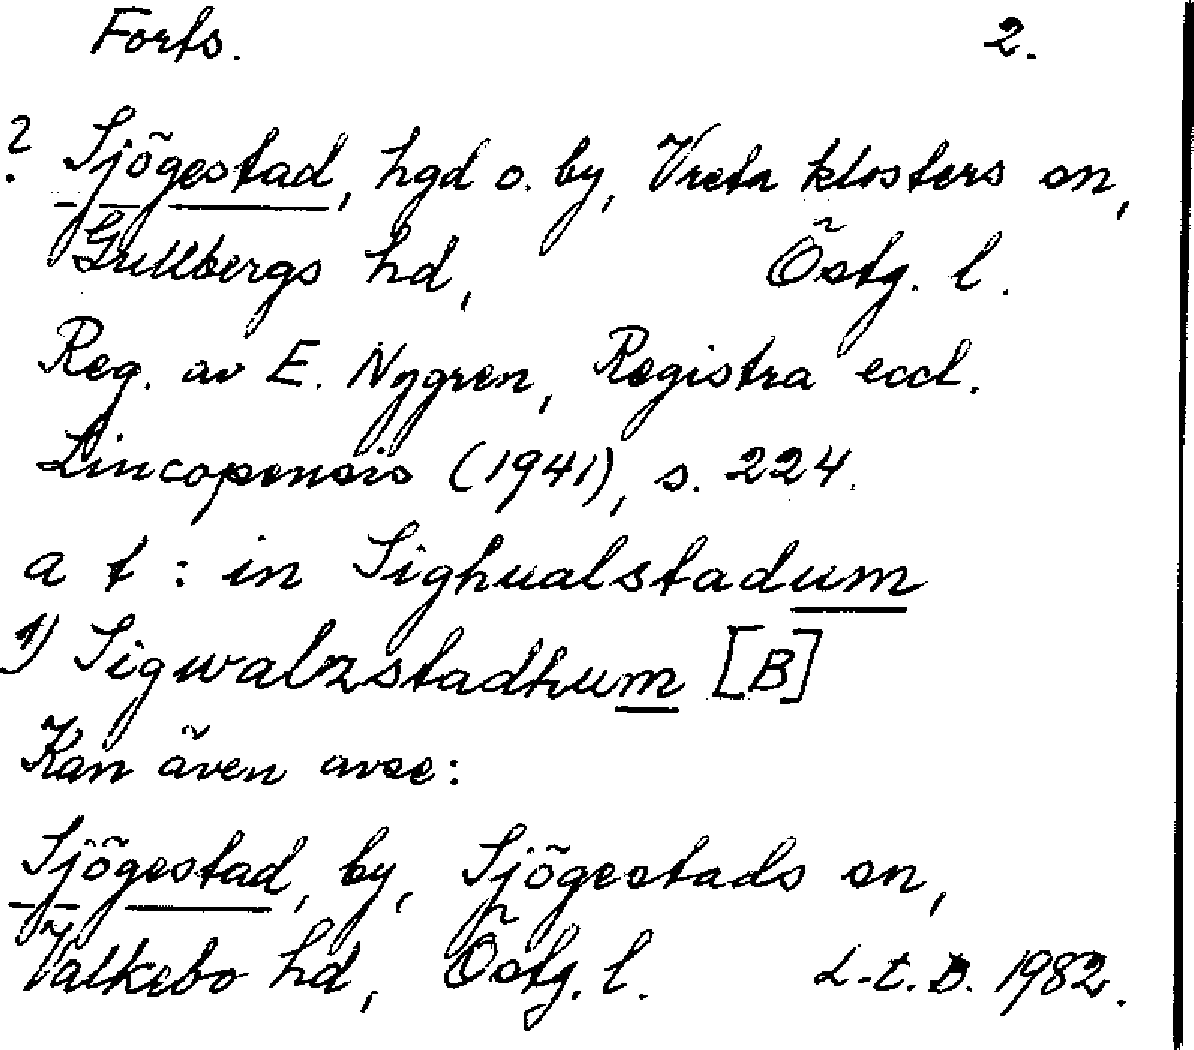 Forts. 2.
? Sjögestad, hgd o. by, Vreta klosters sn,
Gullbergs hd, Östg. l.
Reg. av E. Nygren, Registra eccl.
Lincopensis (1941), s. 224.
a t : in Sighualstadum
1) Sigwalzstadhum [B]
Kan även avse:
Sjögestad, by, Sjögestads sn,
Valkebo hd, Östg. l. L-t. B. 1982.